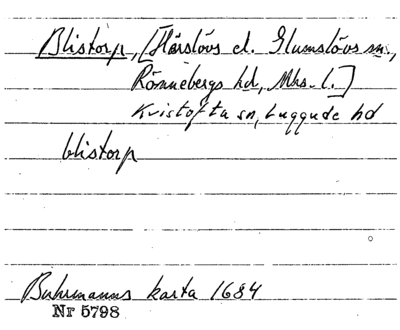 Blistorp, [Härslövs el. Glumslövs sn.,
Rönnebergs hd, Mhs. l.]
Kvistofta sn, Luggude hd
blistorp
Buhrmanns karta 1684
Nr 5798